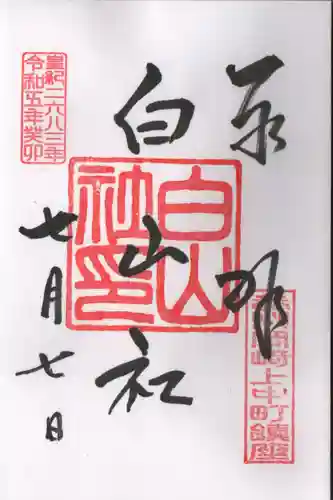 奉拝
白山社
七月七日
皇紀二六八三年
令和五年癸卯
白山社印
岡崎上中町鎮座